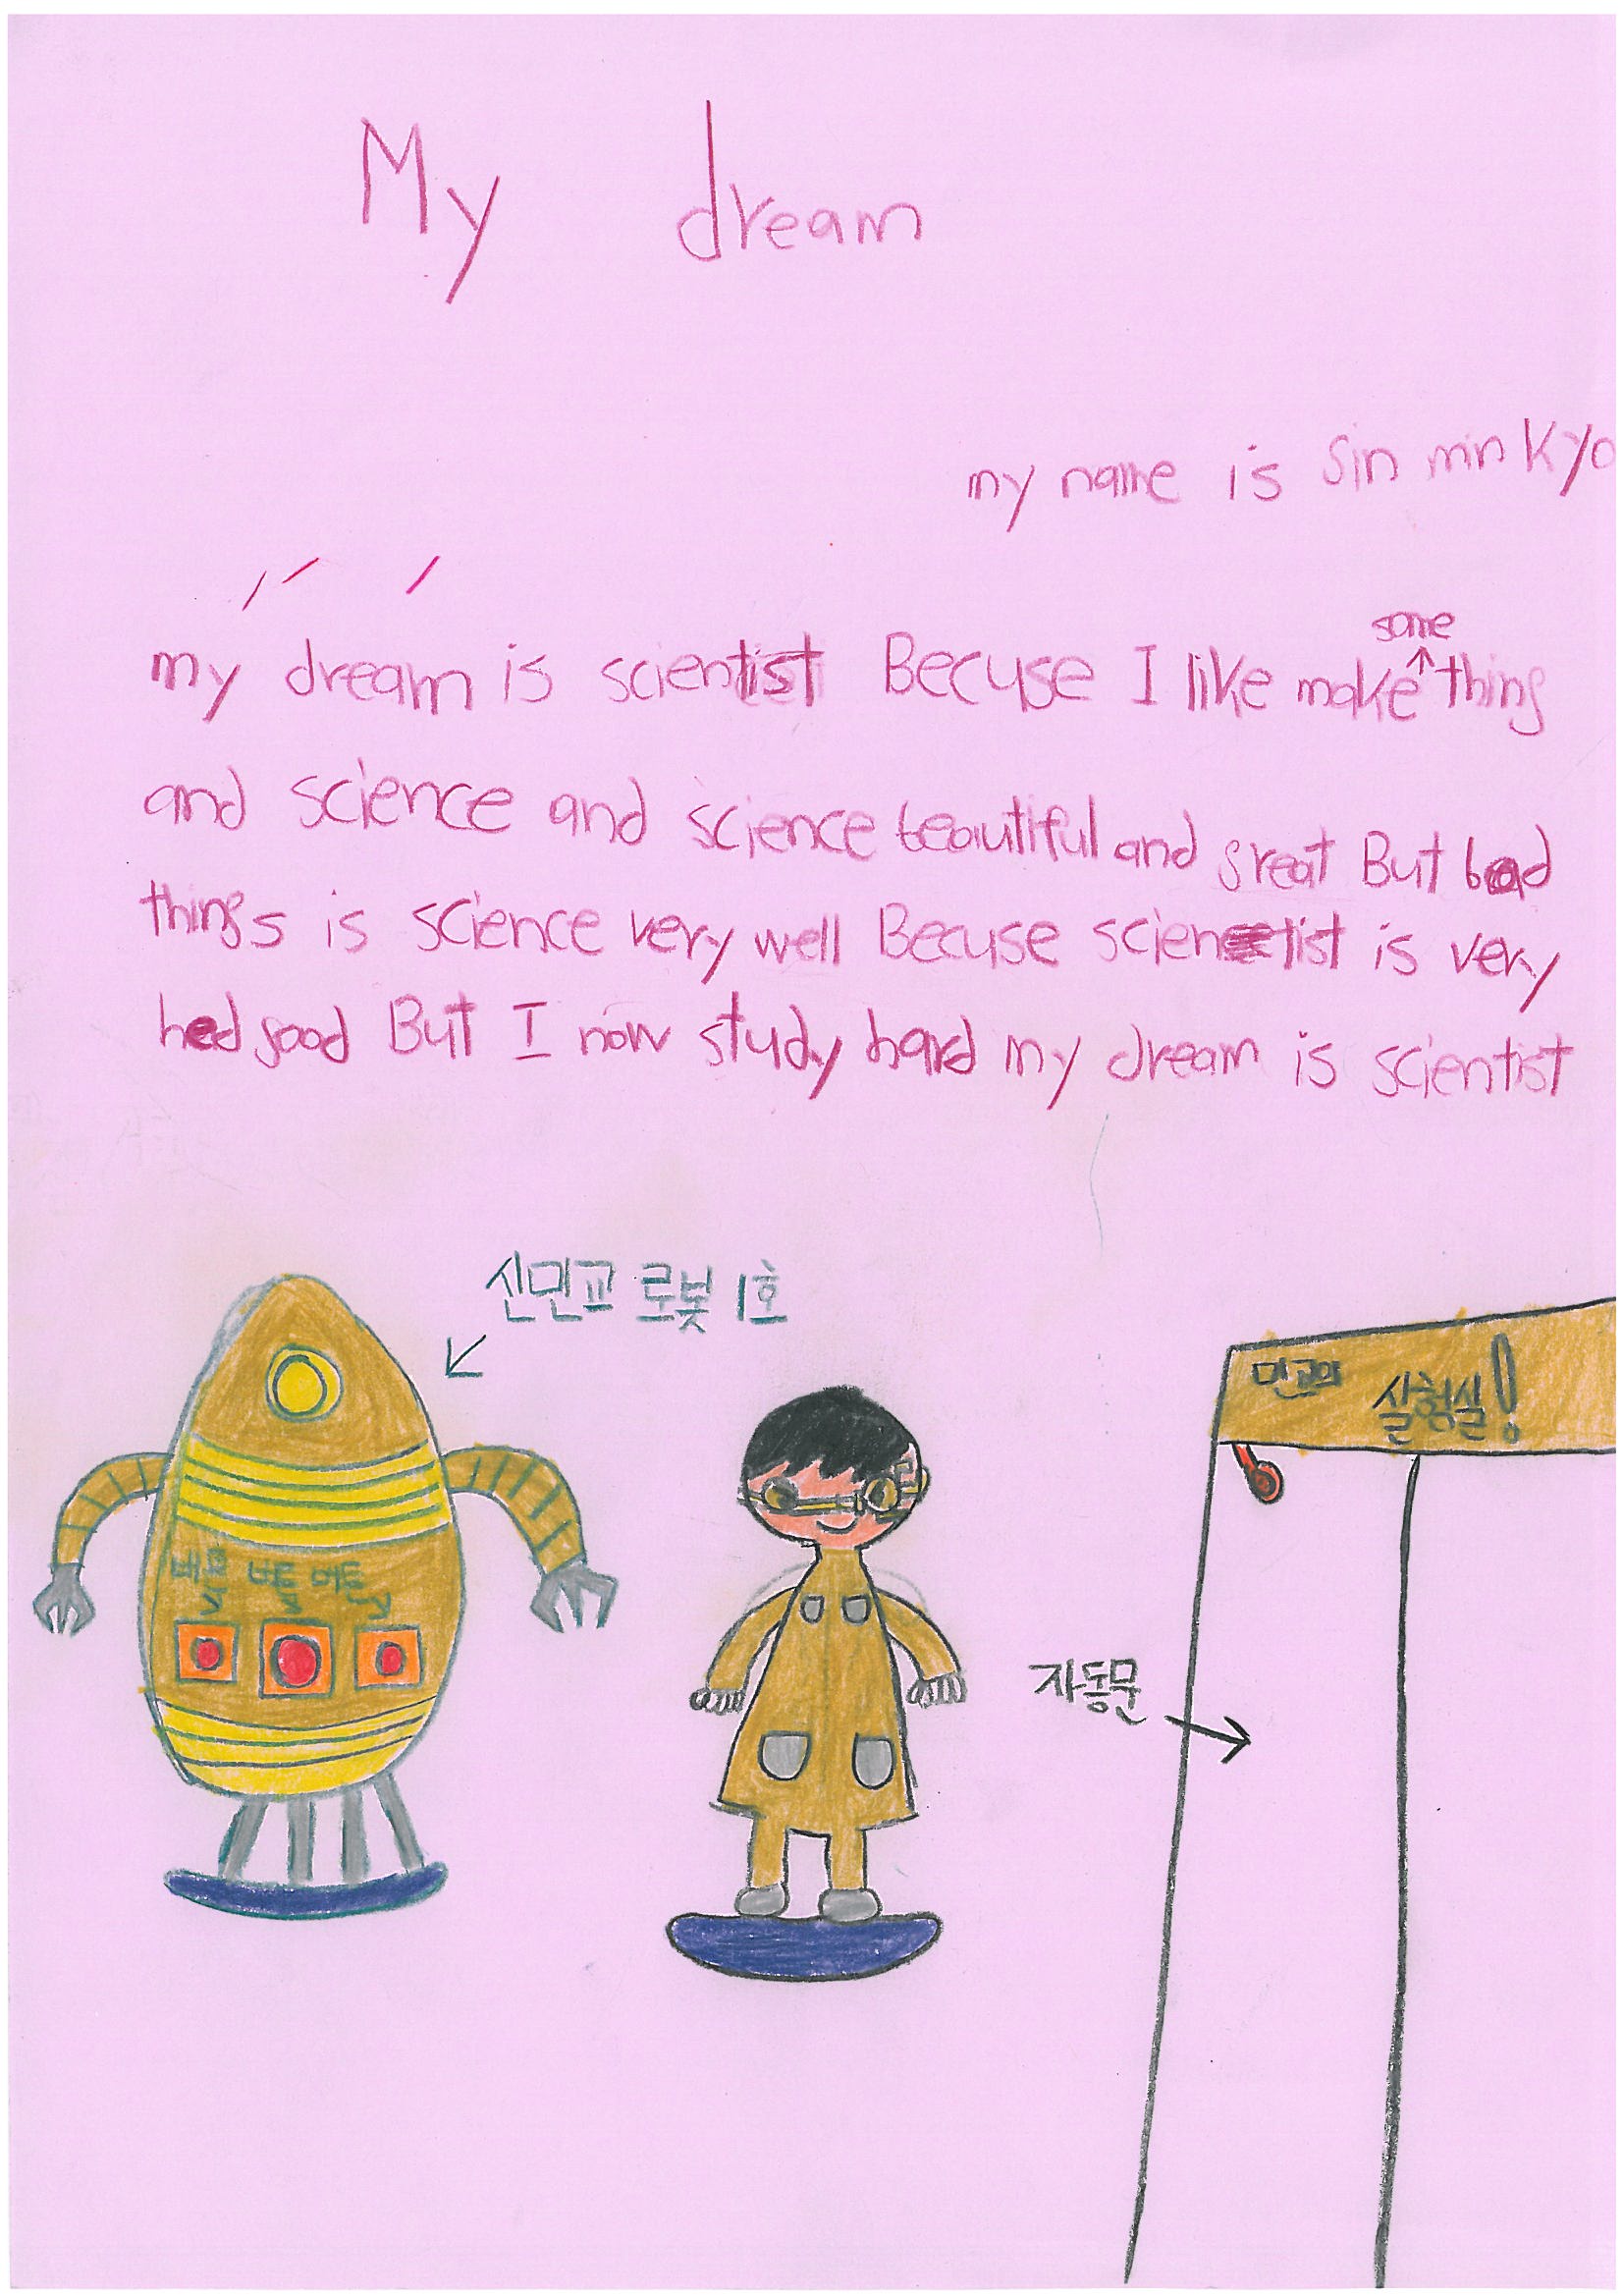 My dream
my name is Sin min Kyo
some
my dream is scientist Becuse I like make↑thing
and science and science beautiful and great But bad
things is science very well Becuse scientist is very
hed good But I now study hard my dream is scientist
신민교 로봇 1호
민교의 실험실!
버튼 버튼 버튼
자동문